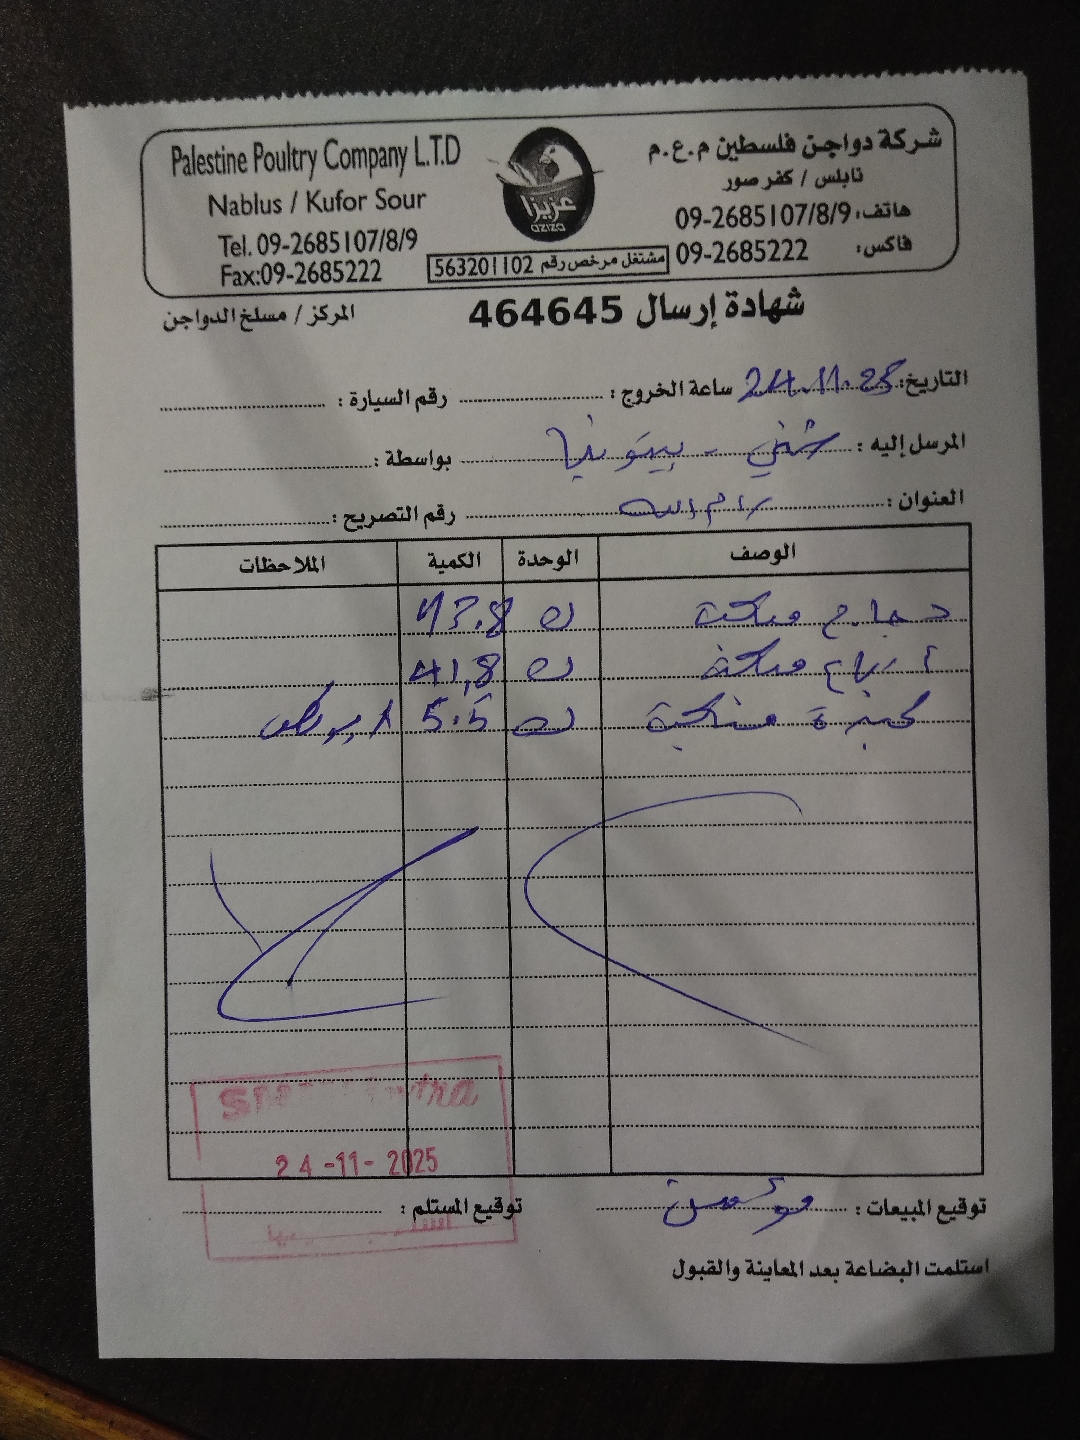 Palestine Poultry Company L.T.D
Nablus / Kufor Sour
Tel. 09-2685107/8/9
Fax:09-2685222
عزيزا
aziza
مشتغل مرخص رقم 563201102
شركة دواجن فلسطين م.ع.م
نابلس / كفر صور
هاتف: 09-2685107/8/9
فاكس: 09-2685222
شهادة إرسال 464645
المركز / مسلخ الدواجن
التاريخ: 24.11.25 ساعة الخروج: رقم السيارة:
المرسل إليه: بيتونيا بواسطة:
العنوان: رام الله رقم التصريح:
الوصف الوحدة الكمية الملاحظات
دجاج ك 43.8
ك 41,8
كبدة ك 5.5
24-11-2025
توقيع المبيعات: توقيع المستلم:
استلمت البضاعة بعد المعاينة والقبول